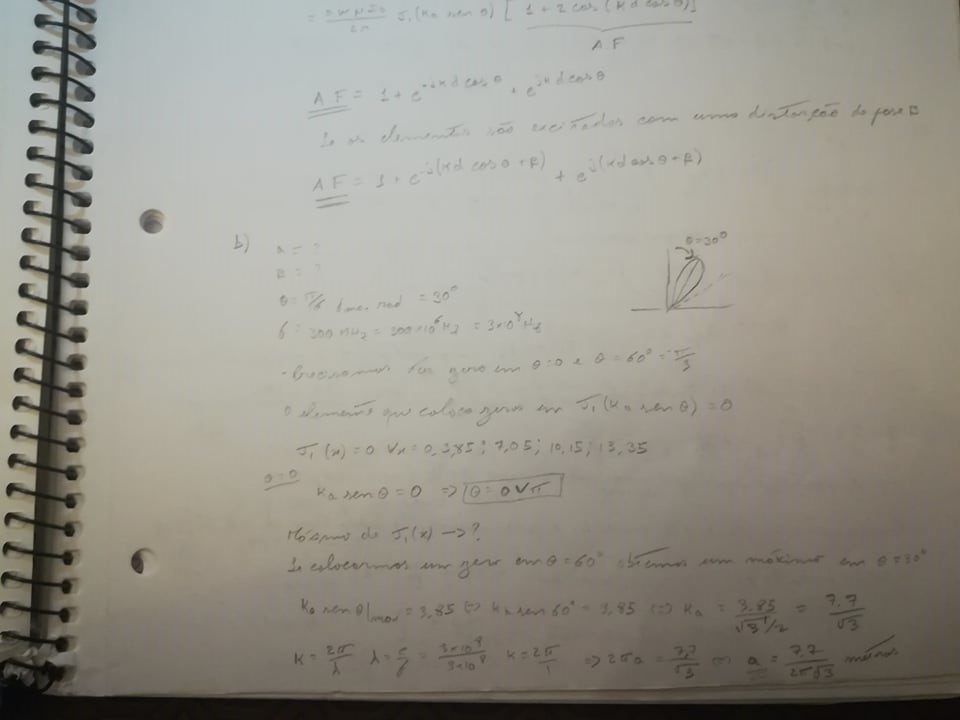 J₁(ka sen θ) [1 + 2 cos(kd cos θ)]
AF
AF = 1 + e^{-jkd cos θ} + e^{jkd cos θ}
Se os elementos são excitados com uma distorção de fase B
AF = 1 + e^{-j(kd cos θ + B)} + e^{j(kd cos θ + B)}
b)
a = ?
B = ?
θ = 30º
θ = π/6 rad = 30º
f = 300 MHz = 300×10⁶ Hz = 3×10⁸ Hz
- Precisamos ter zero em θ=0 e θ = 60º = π/3
O elemento que coloca zeros em J₁(ka sen θ) = 0
J₁(x) = 0 ∨ x = 0, 3,85; 7,05; 10,15; 13,35
θ=0
ka sen θ = 0 => θ = 0 ∨ π
Máximo de J₁(x) -> ?
Se colocarmos um zero em θ = 60º obtemos um máximo em θ = 30º
ka sen θ|max = 3,85 <=> ka sen 60º = 3,85 <=> ka = 3,85/(√3/2) = 7,7/√3
k = 2π/λ λ = c/f = 3×10⁸/3×10⁸ k = 2π/1 => 2πa = 7,7/√3 <=> a = 7,7/(2π√3) metros